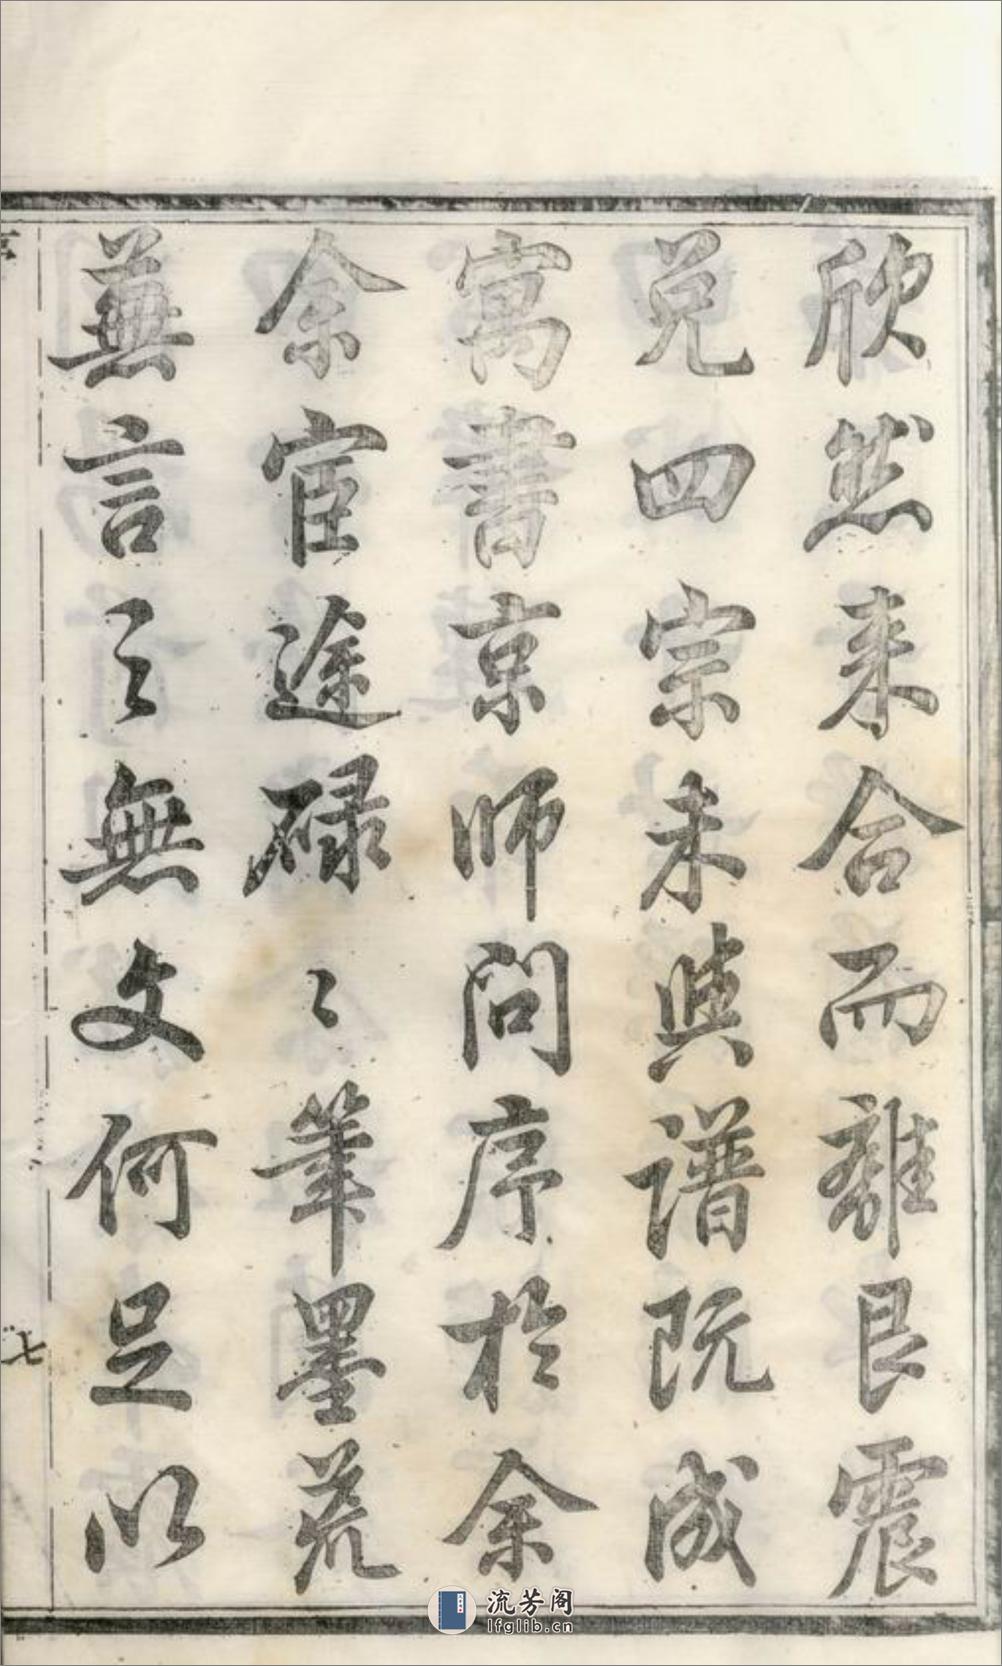 欣然来合而離艮震
兑四宗未與譜既成
寓書京師問序於余
余宦途碌〻筆墨荒
蕪言之無文何足以
七
流芳阁
lfglib.cn